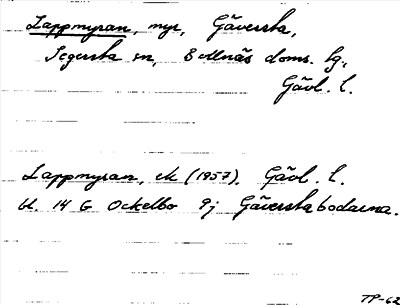 Lappmyran, myr, Gäversta,
Segersta sn, Bollnäs doms. hg,
Gävl. l.
Lappmyran, ek (1957). Gävl. l.
bl. 14 G Ockelbo 9j Gäverstabodarna.
TP-62